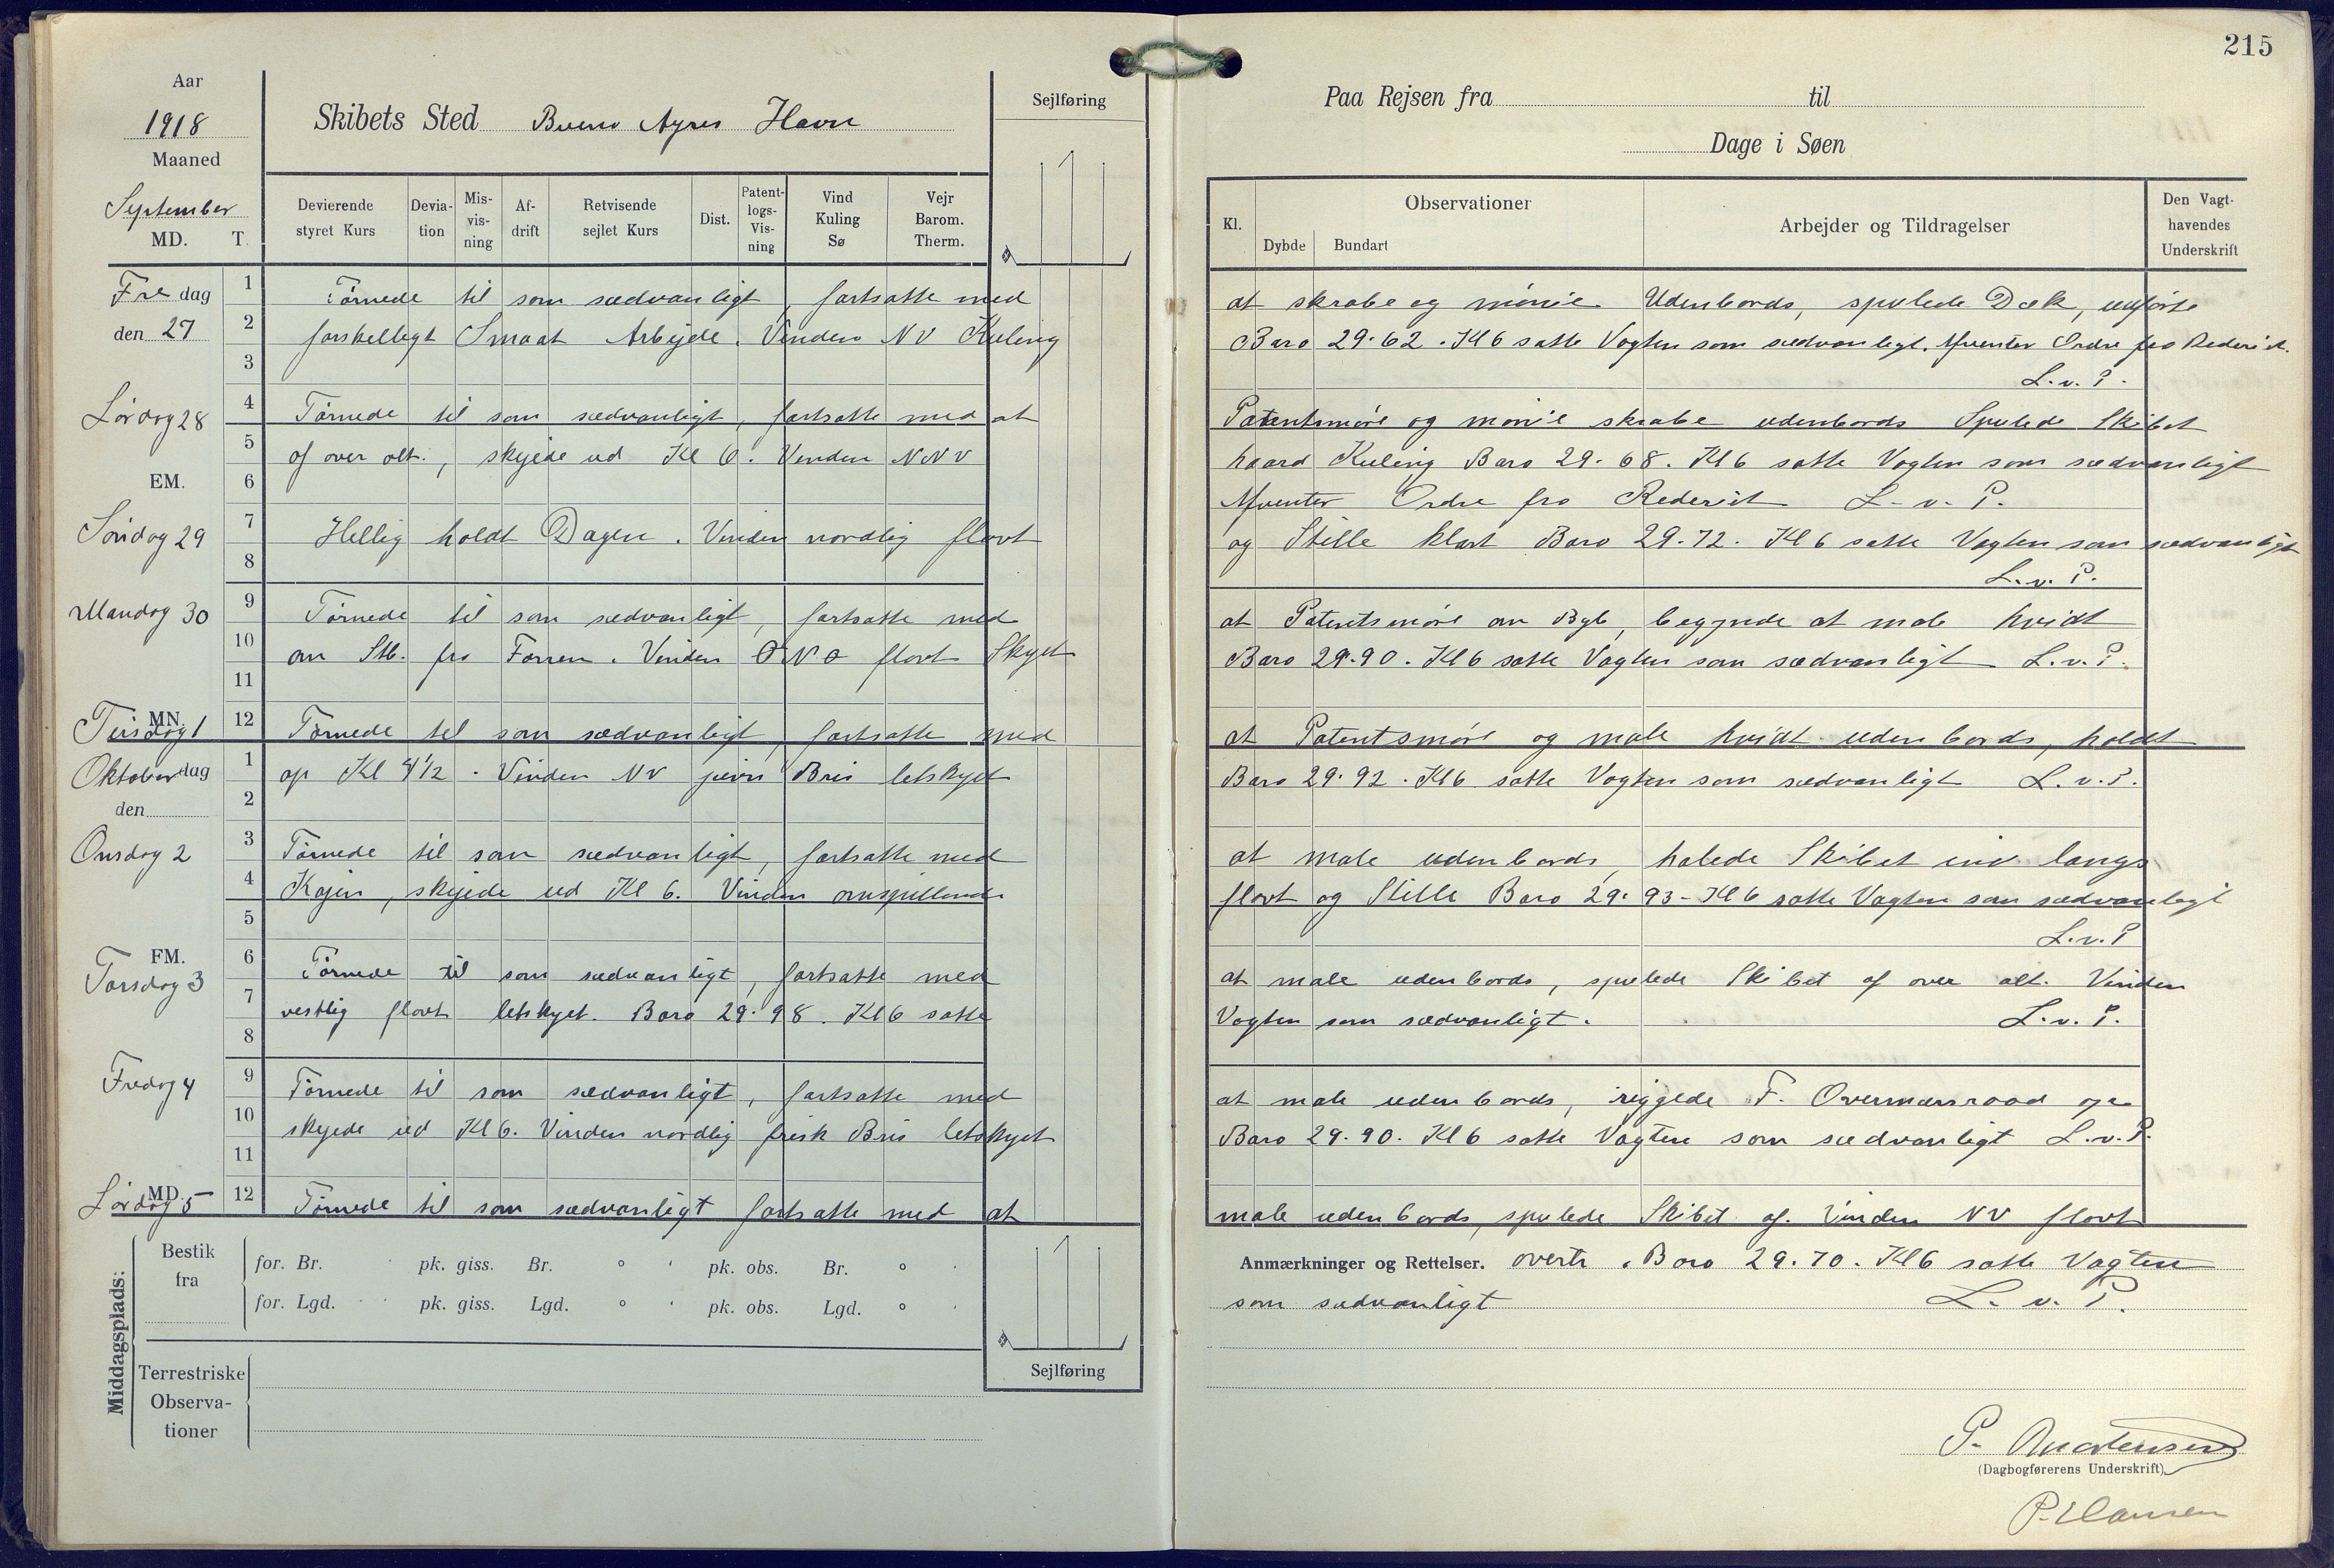 215
Aar
1918
Maaned
September
MD. T.
Skibets Sted Bueno Ayres Havn
Sejlføring
Devierende styret Kurs
Deviation
Misvisning
Afdrift
Retvisende sejlet Kurs
Dist.
Patentlogs-Visning
Vind Kuling Sø
Vejr Barom. Therm.
Paa Rejsen fra til
Dage i Søen
Kl.
Observationer
Dybde Bundart
Arbejder og Tildragelser
Den Vagthavendes Underskrift
Fredag den 27
1 Tørnede til som sædvanligt, fortsatte med at skrabe og mönie Udenbords, spulede Dæk, udførte
2 forskelligt Smaat Arbejde. Vinden NV Kuling Baro 29.62. Kl 6 satte Vagten som sædvanligt. Afventer Ordre fra Rederiet.
3 L.v.P.
Lørdag 28
4 Tørnede til som sædvanligt, fortsatte med at Patentsmøre og mönie skrabe udenbords Spulede Skibet
5 af over alt., skejede ud Kl 6. Vinden NNV haard Kuling Baro 29.68. Kl 6 satte Vagten som sædvanligt
EM.
6 Afventer Ordre fra Rederiet L.v.P.
Søndag 29
7 Hellig holdt Dagen. Vinden nordlig flovt og Stille klart Baro 29.72. Kl 6 satte Vagten som sædvanligt
8 L.v.P.
Mandag 30
9 Tørnede til som sædvanligt, fortsatte med at Patentsmøre om Bgb, begynde at male hvidt
10 om Stb. fra Forren. Vinden ONO flovt Skyet Baro 29.90. Kl 6 satte Vagten som sædvanligt L.v.P.
11
MN.
Tirsdag 1
12 Tørnede til som sædvanligt, fortsatte med at Patentsmøre og male hvidt udenbords, holdt
Oktober dag
den
1 op Kl 4½. Vinden NV jævn Bris letskyet Baro 29.92. Kl 6 satte Vagten som sædvanligt L.v.P.
2
Onsdag 2
3 Tørnede til som sædvanligt, fortsatte med at male udenbords, halede Skibet ind langs
4 Kajen, skejede ud Kl 6. Vinden omspillende flovt og Stille Baro 29.93 - Kl 6 satte Vagten som sædvanligt
5 L.v.P
FM.
Torsdag 3
6 Tørnede til som sædvanligt, fortsatte med at male udenbords, spulede Skibet af over alt. Vinden
7 vestlig flovt letskyet. Baro 29.98. Kl 6 satte Vagten som sædvanligt. L.v.P.
8
Fredag 4
9 Tørnede til som sædvanligt, fortsatte med at male udenbords, riggede F. Overmærsraad op
10 skejede ud Kl 6. Vinden nordlig frisk Bris letskyet Baro 29.90. Kl 6 satte Vagten som sædvanligt L.v.P.
11
MD.
Lørdag 5
12 Tørnede til som sædvanligt fortsatte med at male udenbords, spulede Skibet af. Vinden NV flovt
Anmærkninger og Rettelser. overtr. Baro 29.70. Kl 6 satte Vagten
som sædvanligt L.v.P.
Middagsplads:
Bestik fra
for. Br. pk. giss. Br. ° ' pk. obs. Br. ° '
for. Lgd. pk. giss. Lgd. ° ' pk. obs. Lgd. ° '
Terrestriske Observationer
Sejlføring
P. Mortensen
(Dagbogførerens Underskrift)
P. Hansen